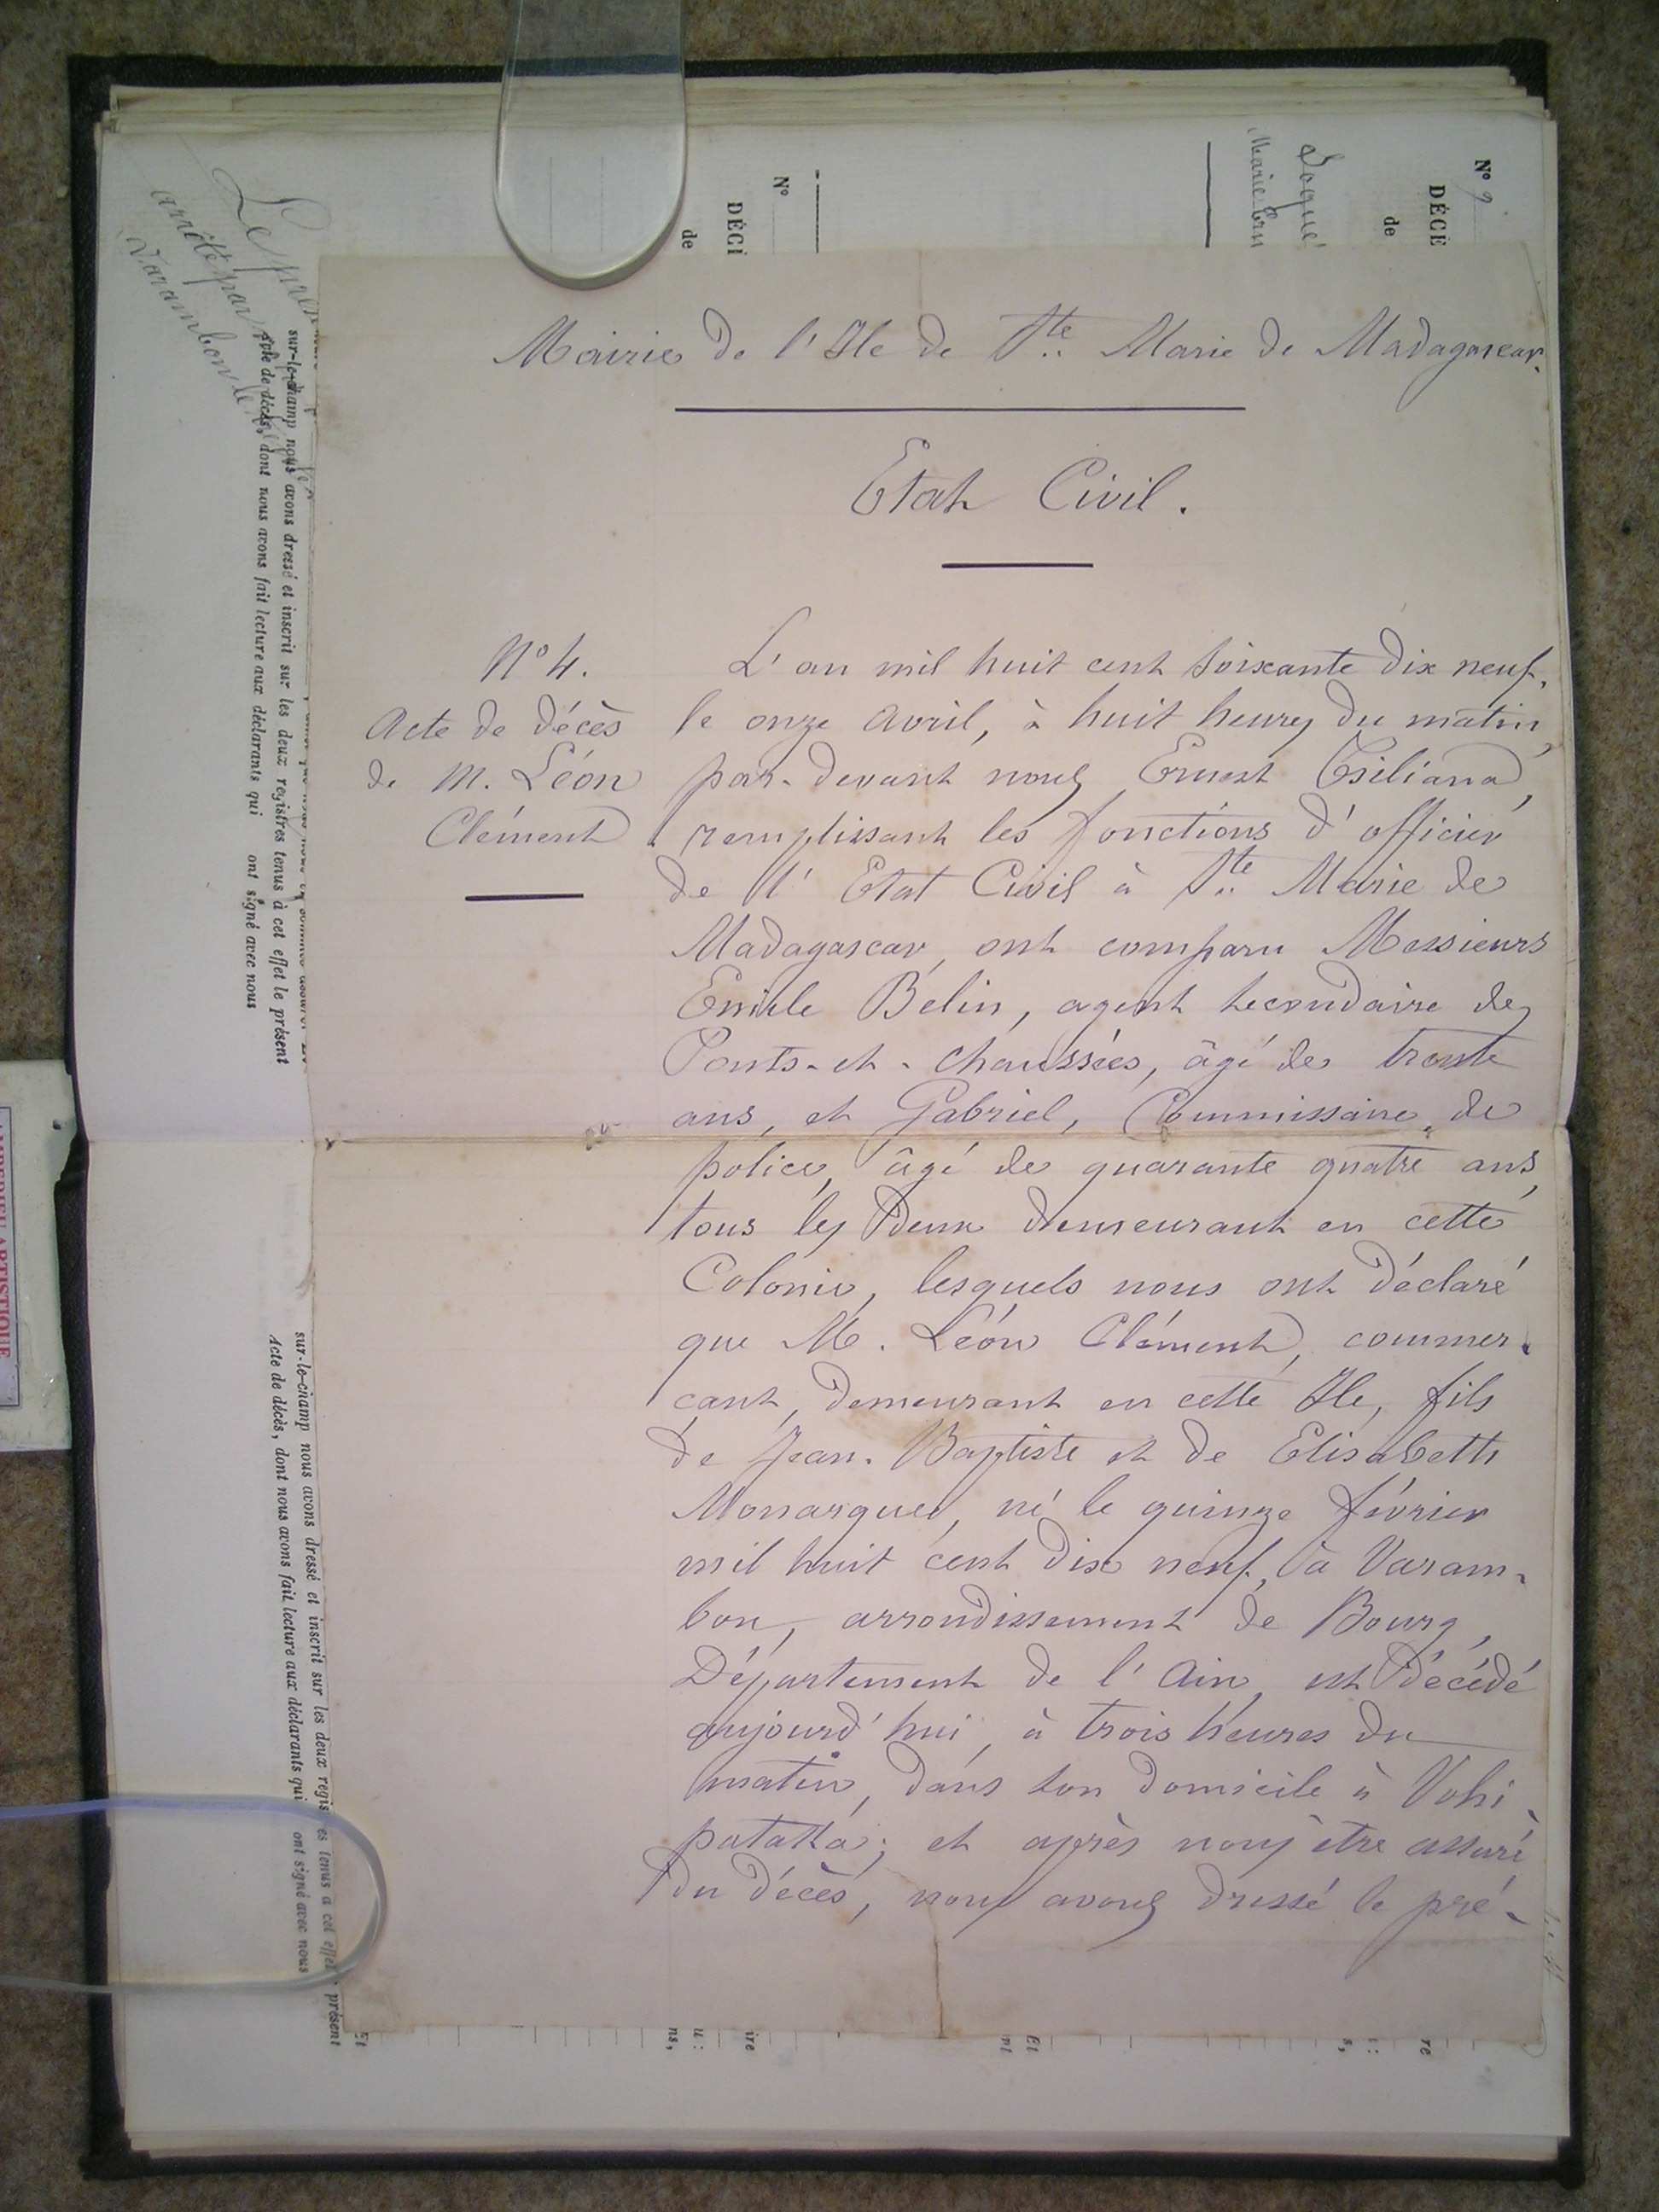 Mairie de l'Ile de Ste Marie de Madagascar.
Etat Civil.
N° 4.
Acte de décès
de M. Léon
Clément
L'an mil huit cent soixante dix neuf,
le onze avril, à huit heures du matin,
par-devant nous Ernest Tsiliana,
remplissant les fonctions d'officier
de l'Etat Civil à Ste Marie de
Madagascar, ont comparu Messieurs
Emile Belin, agent secondaire des
Ponts-et-chaussées, âgé de trente
ans, et Gabriel, Commissaire de
police, âgé de quarante quatre ans,
tous les deux demeurant en cette
Colonie, lesquels nous ont déclaré
que M. Léon Clément, commer-
çant, demeurant en cette Ile, fils
de Jean-Baptiste et de Elisabeth
Monarque, né le quinze février
mil huit cent dix neuf, à Varam-
bon, arrondissement de Bourg,
Département de l'Ain, est décédé
aujourd'hui, à trois heures du
matin, dans son domicile à Vohi-
patatka; et après nous être assuré
du décès, nous avons dressé le pré-
N° 9
DÉCÈ
de
Marie
N°
DÉCÈ
de
arrêté par
Varambon le
sur-le-champ nous avons dressé et inscrit sur les deux registres tenus à cet effet le présent
acte de décès, dont nous avons fait lecture aux déclarants qui ont signé avec nous
sur-le-champ nous avons dressé et inscrit sur les deux regis es tenus à cet effet présent
Acte de décès, dont nous avons fait lecture aux déclarants qui ont signé avec nous
Et
ns,
u :
ire
nt
Et
s,
re
ARTISTIQUE